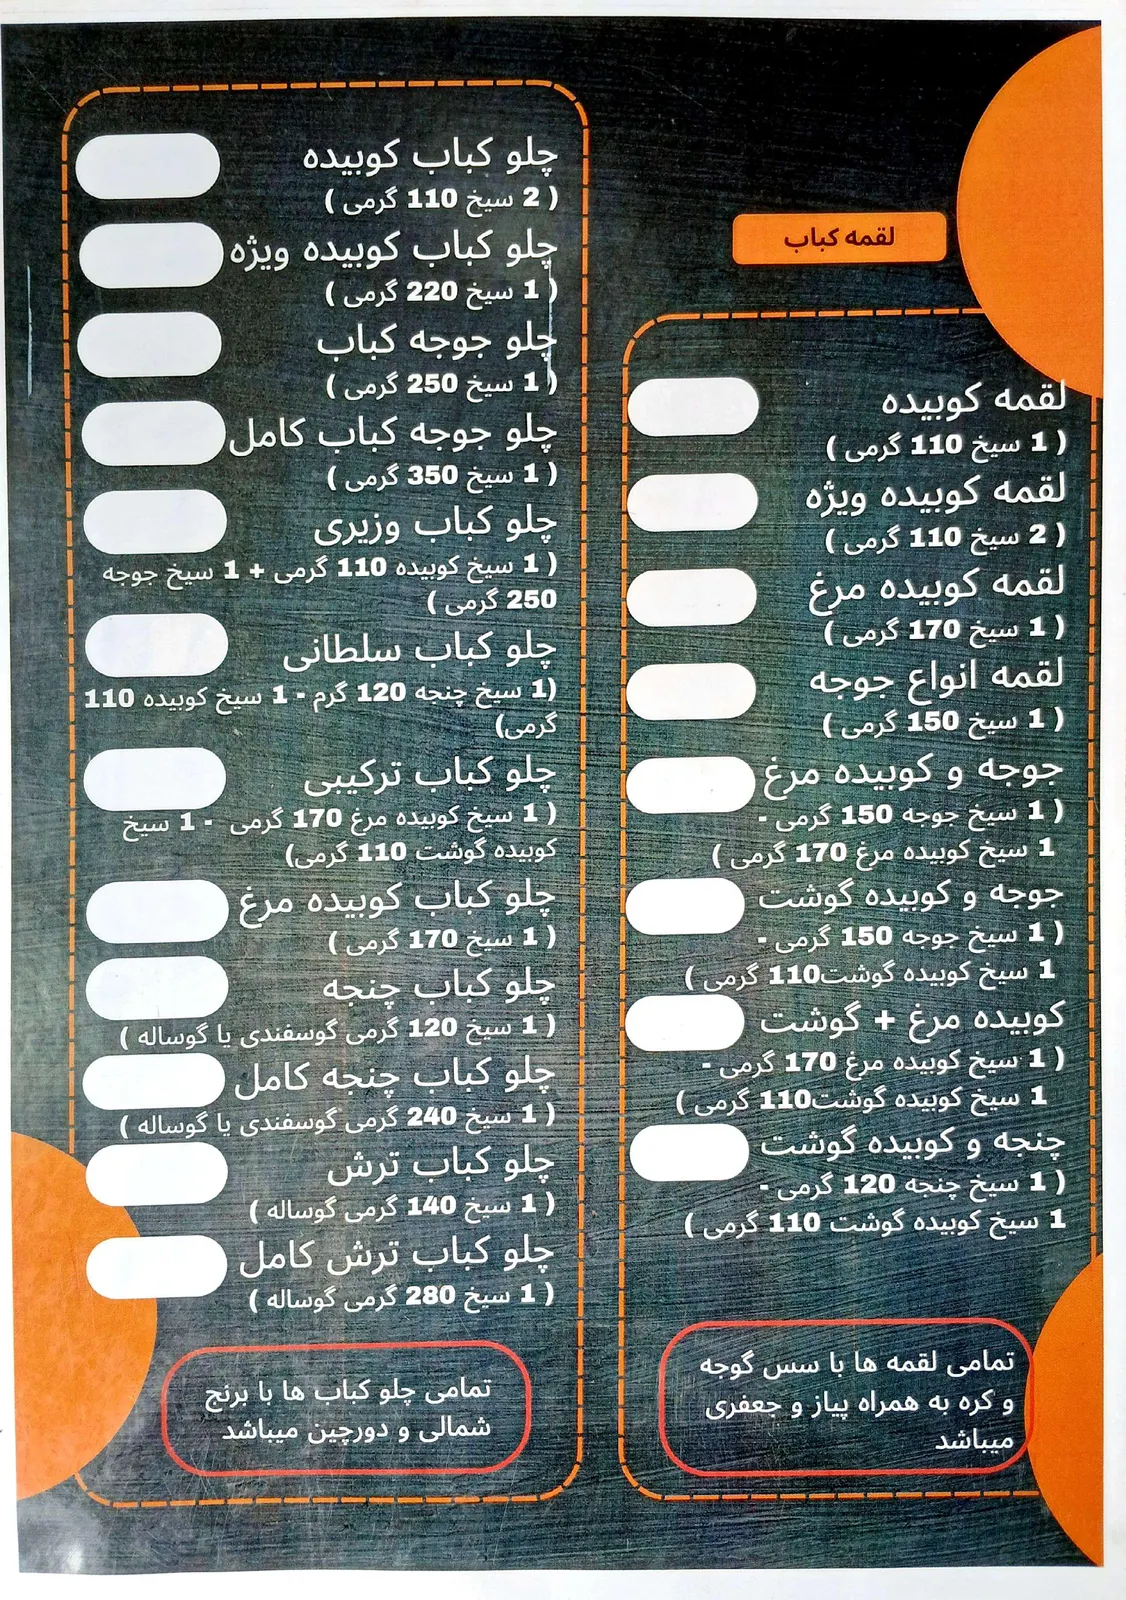 لقمه کباب
لقمه کوبیده
( 1 سیخ 110 گرمی )
لقمه کوبیده ویژه
( 2 سیخ 110 گرمی )
لقمه کوبیده مرغ
( 1 سیخ 170 گرمی )
لقمه انواع جوجه
( 1 سیخ 150 گرمی )
جوجه و کوبیده مرغ
( 1 سیخ جوجه 150 گرمی -
1 سیخ کوبیده مرغ 170 گرمی )
جوجه و کوبیده گوشت
( 1 سیخ جوجه 150 گرمی -
1 سیخ کوبیده گوشت110 گرمی )
کوبیده مرغ + گوشت
( 1 سیخ کوبیده مرغ 170 گرمی -
1 سیخ کوبیده گوشت110 گرمی )
چنجه و کوبیده گوشت
( 1 سیخ چنجه 120 گرمی -
1 سیخ کوبیده گوشت 110 گرمی )
تمامی لقمه ها با سس گوجه
و کره به همراه پیاز و جعفری
میباشد
چلو کباب کوبیده
( 2 سیخ 110 گرمی )
چلو کباب کوبیده ویژه
( 1 سیخ 220 گرمی )
چلو جوجه کباب
( 1 سیخ 250 گرمی )
چلو جوجه کباب کامل
( 1 سیخ 350 گرمی )
چلو کباب وزیری
( 1 سیخ کوبیده 110 گرمی + 1 سیخ جوجه
250 گرمی )
چلو کباب سلطانی
(1 سیخ چنجه 120 گرم - 1 سیخ کوبیده 110
گرمی)
چلو کباب ترکیبی
( 1 سیخ کوبیده مرغ 170 گرمی - 1 سیخ
کوبیده گوشت 110 گرمی)
چلو کباب کوبیده مرغ
( 1 سیخ 170 گرمی )
چلو کباب چنجه
( 1 سیخ 120 گرمی گوسفندی یا گوساله )
چلو کباب چنجه کامل
( 1 سیخ 240 گرمی گوسفندی یا گوساله )
چلو کباب ترش
( 1 سیخ 140 گرمی گوساله )
چلو کباب ترش کامل
( 1 سیخ 280 گرمی گوساله )
تمامی چلو کباب ها با برنج
شمالی و دورچین میباشد